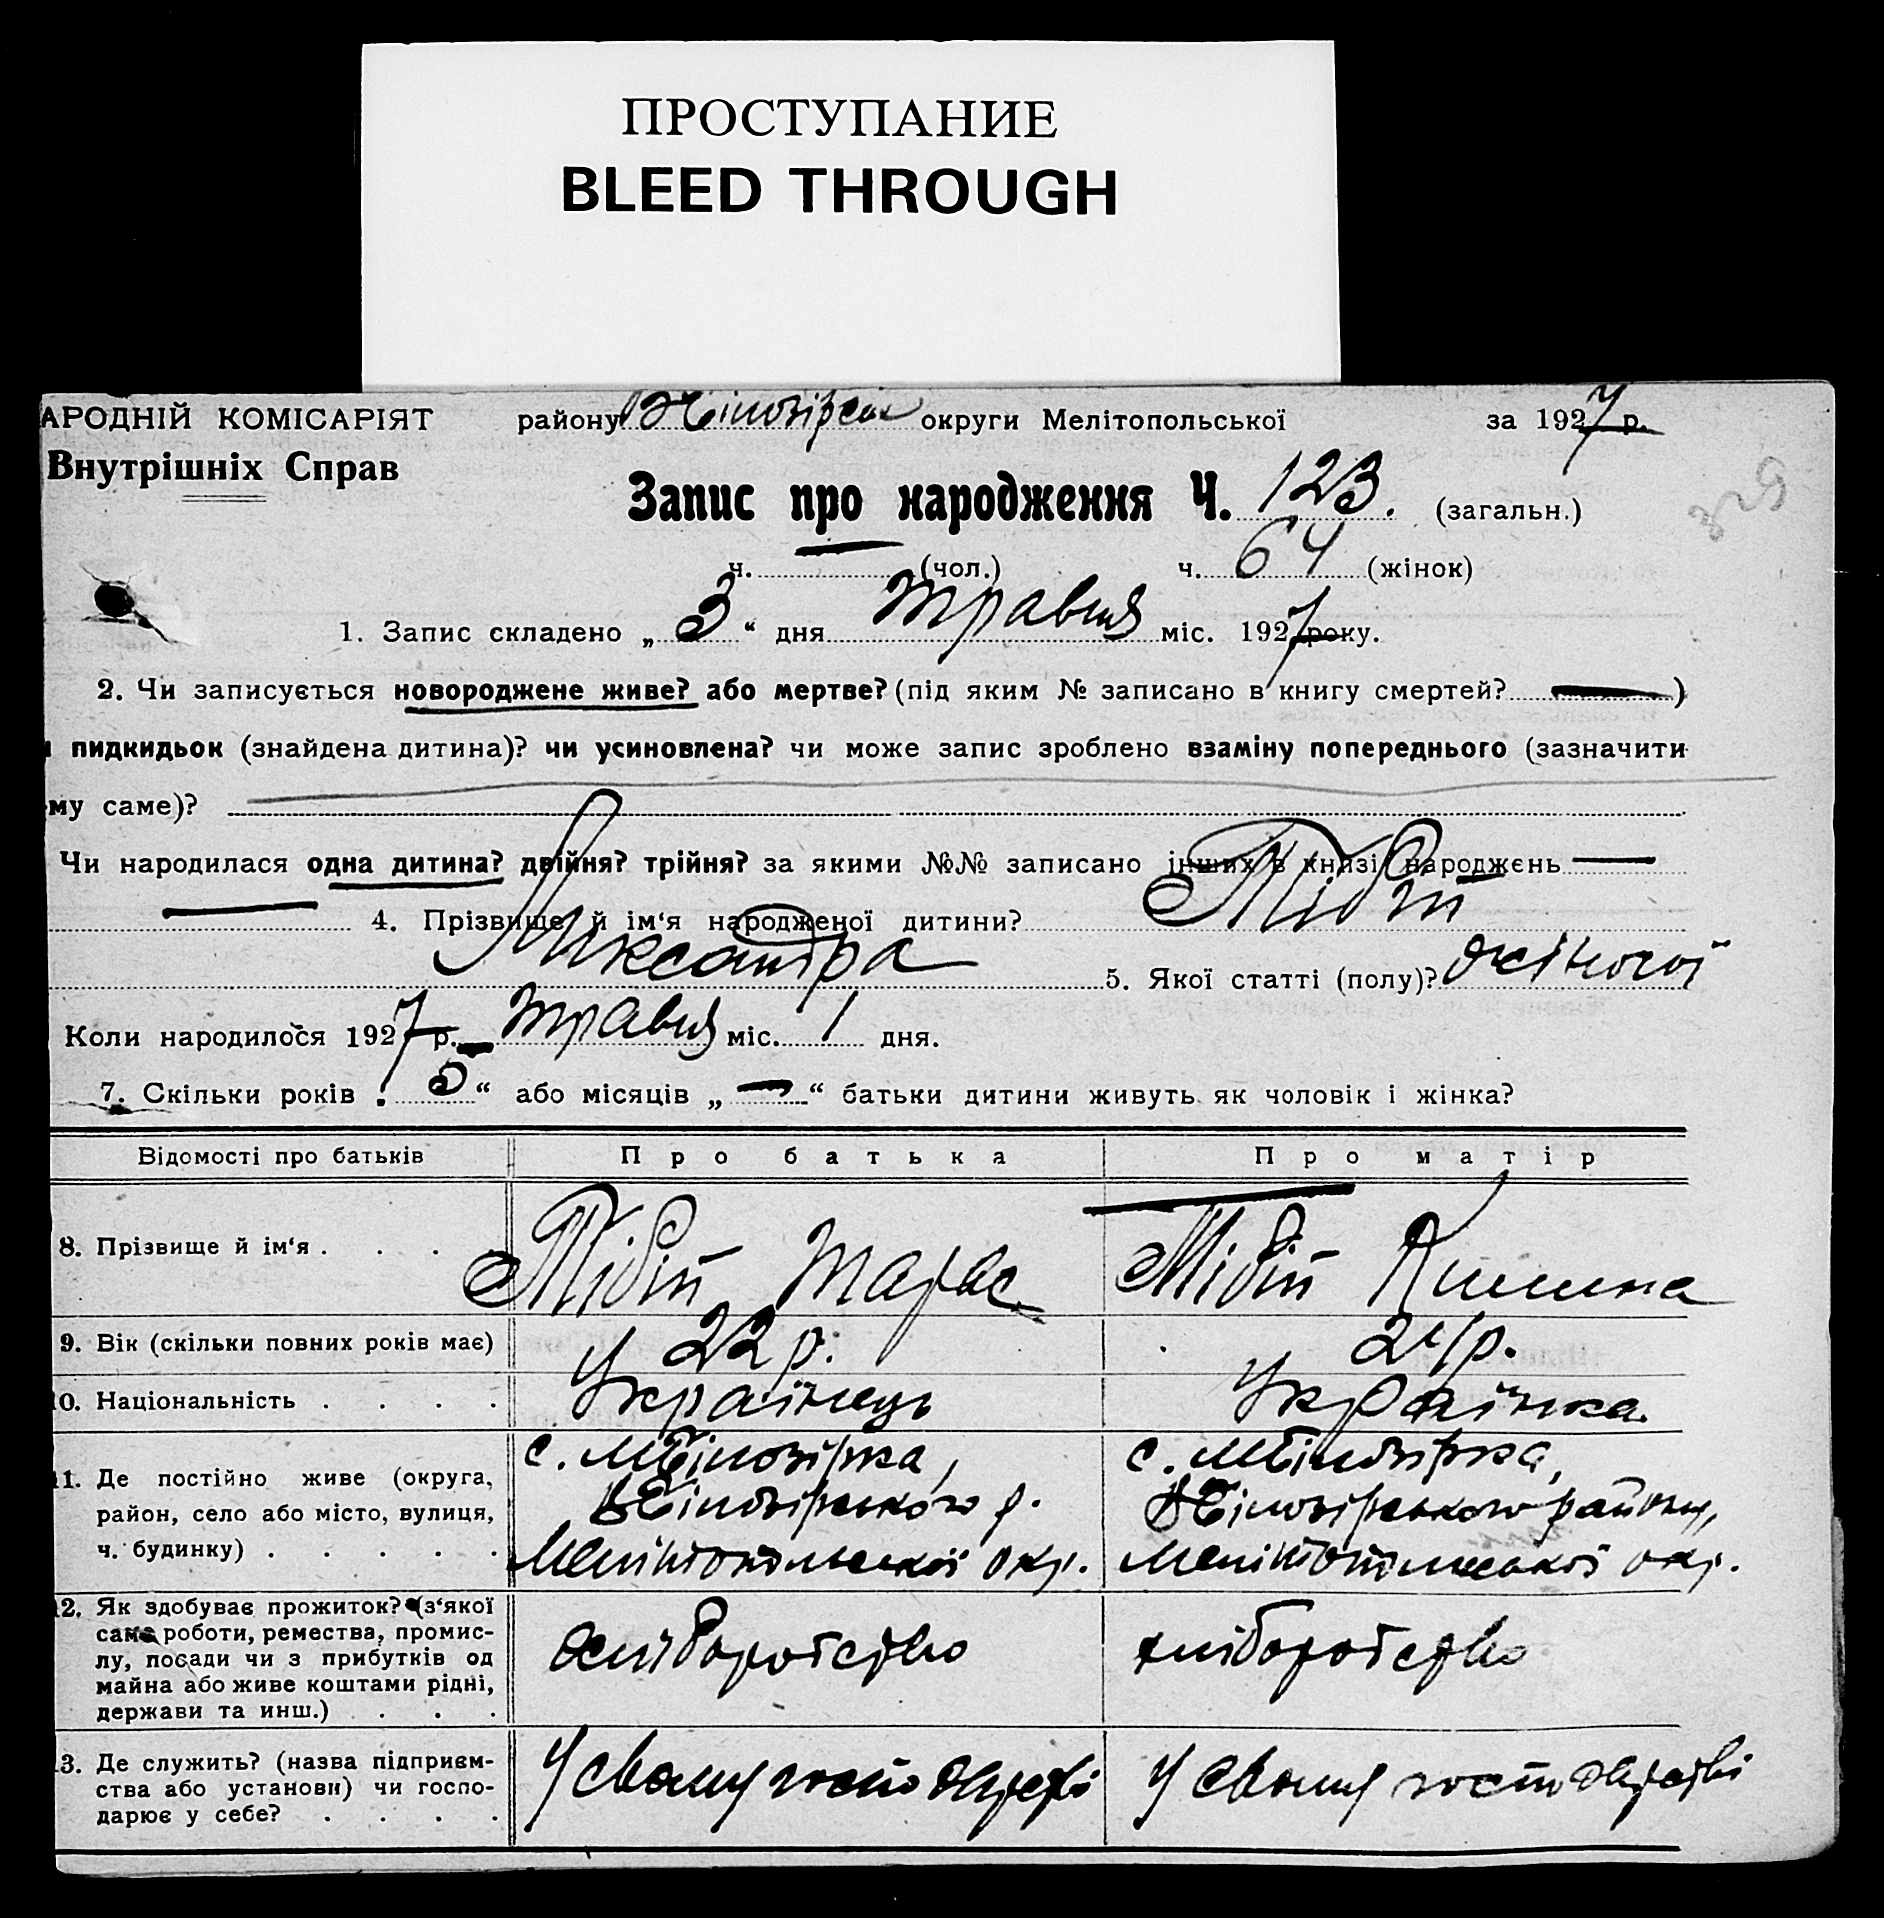 ПРОСТУПАНИЕ
BLEED THROUGH
АРОДНІЙ КОМІСАРІЯТ району округи Мелітопольської за 1927 р.
Внутрішніх Справ
Запис про народження Ч. 123. (загальн.)
ч. — (чол.) ч. 64 (жінок)
1. Запис складено „ 3 “ дня травня міс. 1927 року.
2. Чи записується новороджене живе? або мертве? (під яким № записано в книгу смертей? — )
и пидкидьок (знайдена дитина)? чи усиновлена? чи може запис зроблено взаміну попереднього (зазначити
ому саме)?
Чи народилася одна дитина? двійня? трійня? за якими №№ записано інших в книзі народжень —
— 4. Прізвище й ім‘я народженої дитини? Тібіт
Олександра 5. Якої статті (полу)? жіночої
Коли народилося 1927 р. травня міс. 1 дня.
7. Скільки років „ 5 “ або місяців „ — “ батьки дитини живуть як чоловік і жінка?
Відомості про батьків Про батька Про матір
8. Прізвище й ім‘я . . . . Тібіт Тарас Тібіт
9. Вік (скільки повних років має) 22 р. 24 р.
10. Національність . . . . Українець Українка.
11. Де постійно живе (округа, с. Білозірка, с. Білозірка,
район, село або місто, вулиця, Білозірського р. Білозірського району,
ч. будинку) . . . . . Мелітопольської окр. Мелітопольської окр.
12. Як здобуває прожиток? (з‘якої
саме роботи, ремества, промис-
лу, посади чи з прибутків од хліборобство хліборобство
майна або живе коштами рідні,
держави та инш.) . . .
13. Де служить? (назва підприєм-
ства або установи) чи госпо- У свому господарстві У свому господарстві
дарює у себе? . . . .